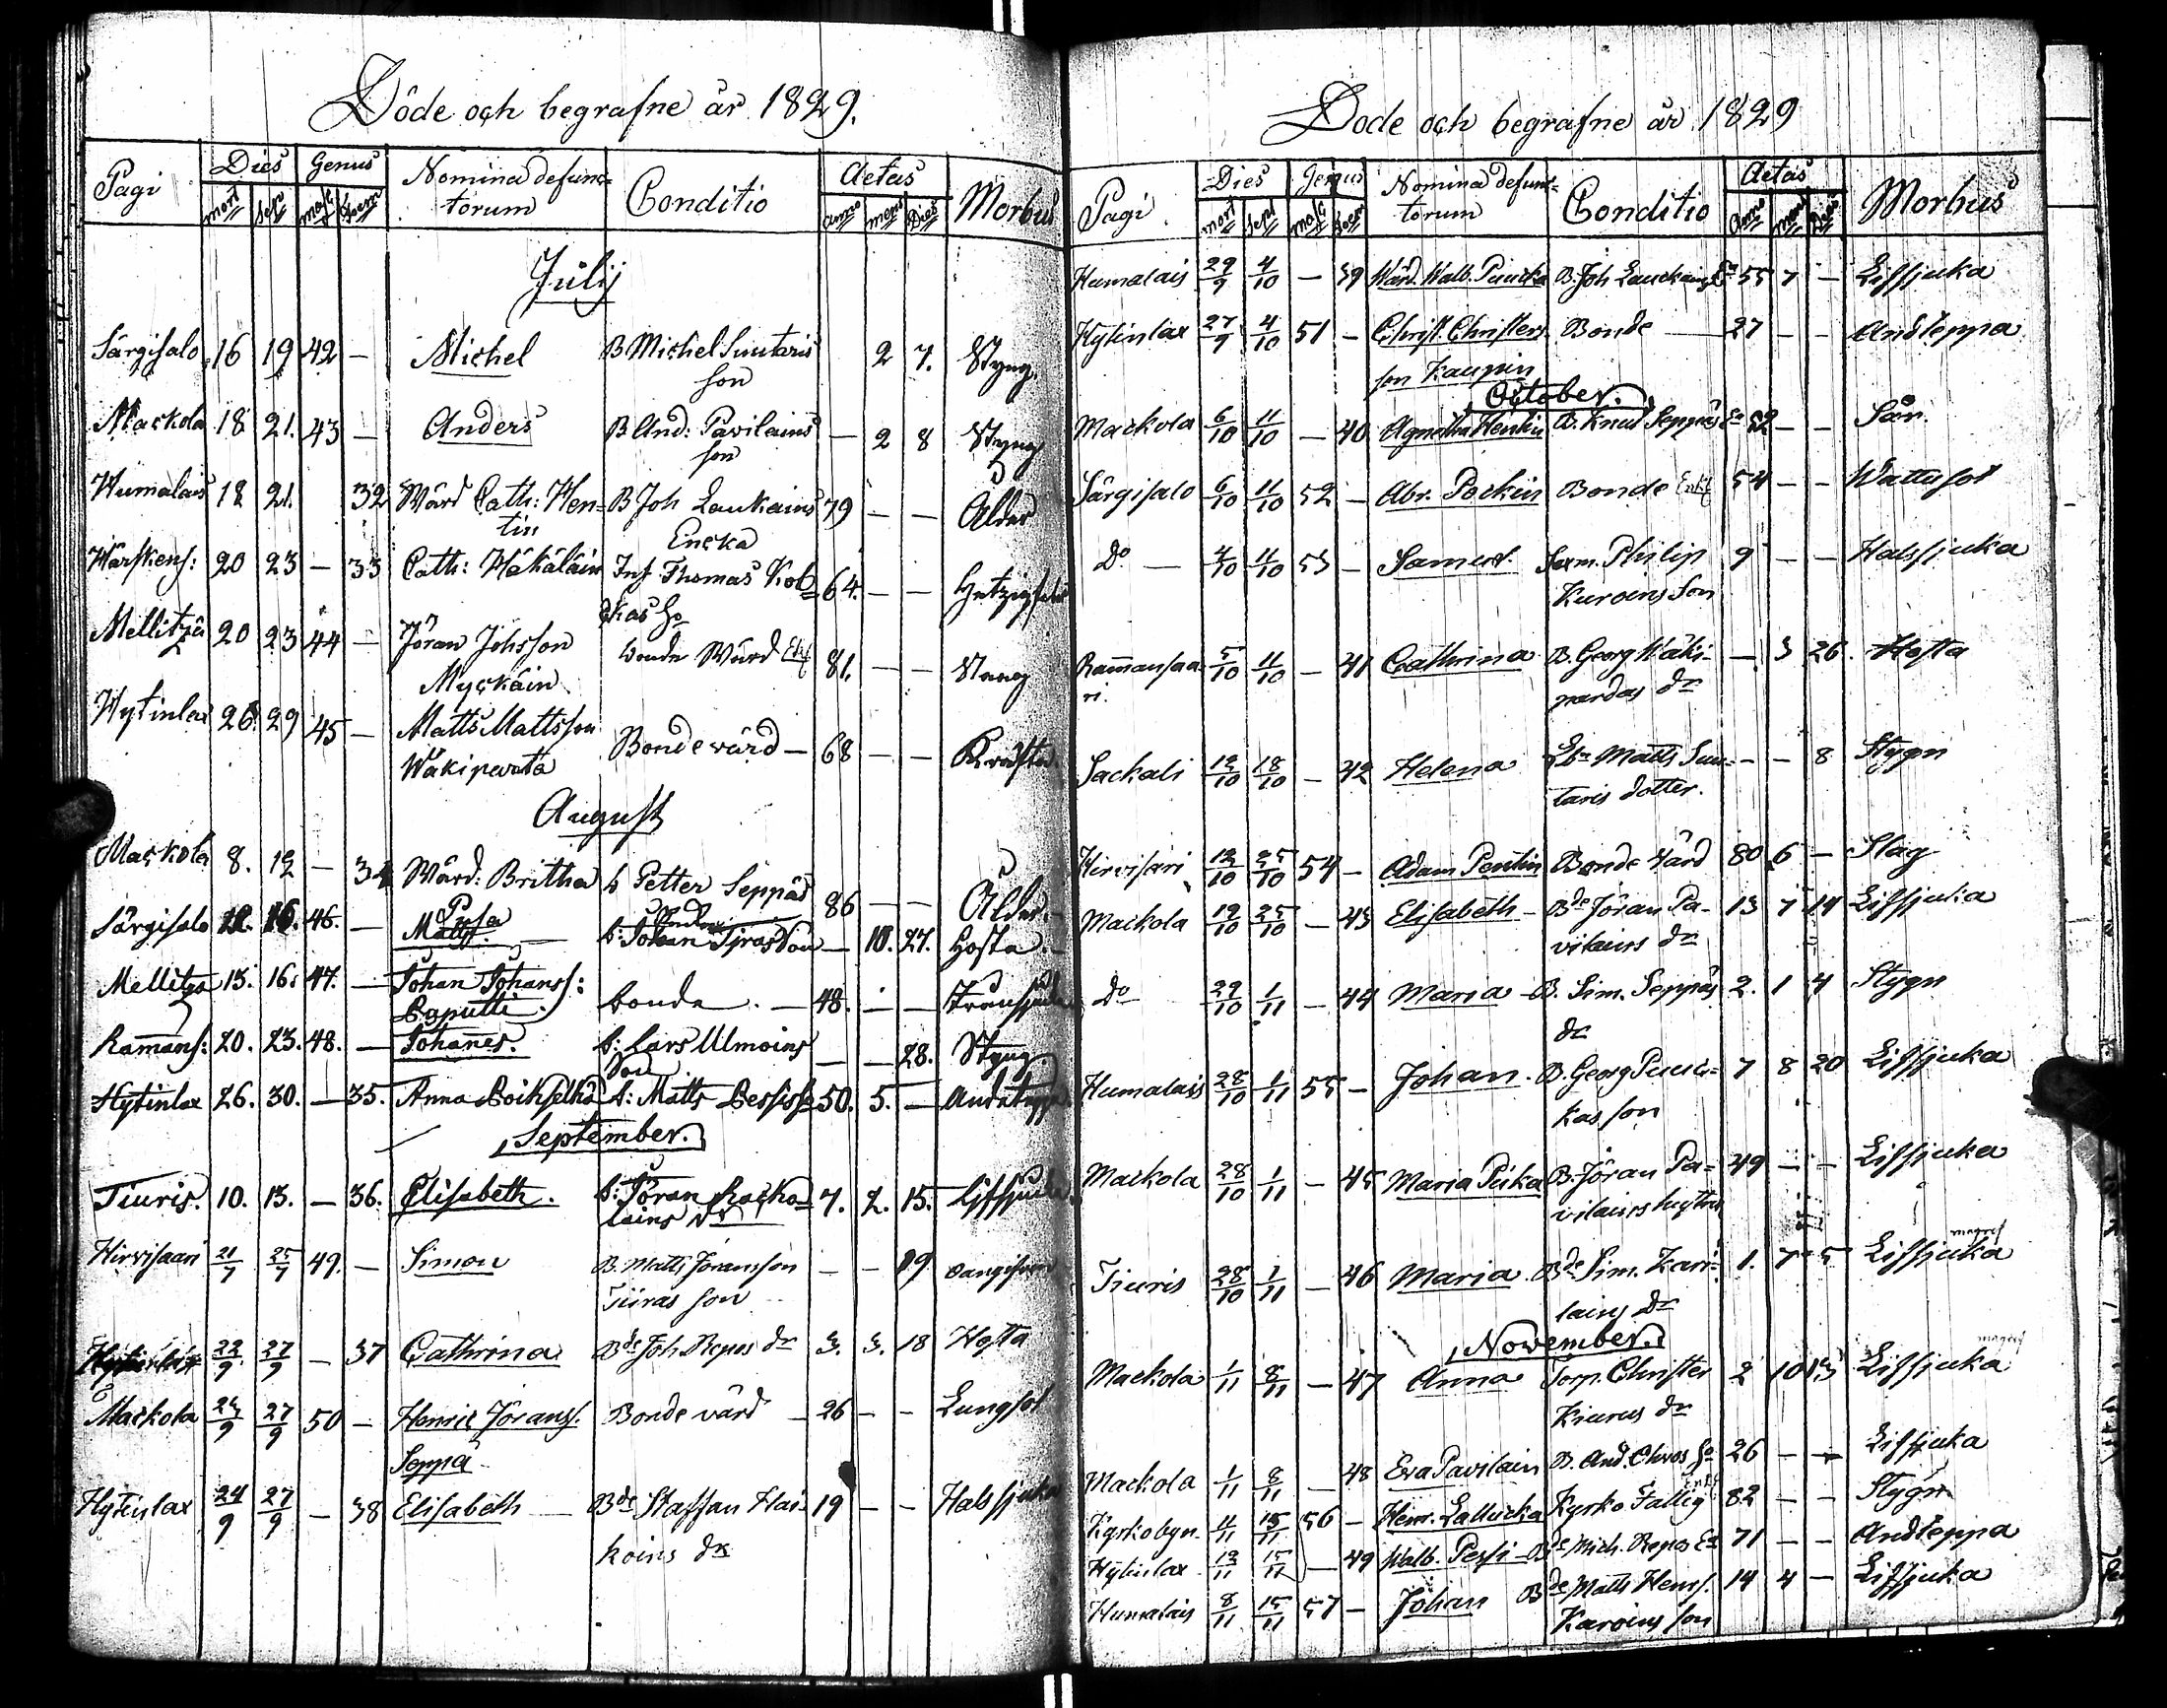 Döde och begrafne år 1829.
Pagi Dies Genus Nomina defunc= Conditio Aetas Morbus
mort sep masc foem torum anno mens Dies
Julij
Särgisalo 16 19 42 — Michel B Michel Suutaris 2 7. Styng
son
Mackola 18 21. 43 — Anders B And: Pavilains — 2 8 Styng
son
Humalais 18 21. 32 Wärd Cath: Hen= B Joh Laukains 79 — — Ålder
tin Encka
20 23 — 33 Cath: Häkäläin Inh Thomas Kok= 64. — —
kas ho
Mellitzä 20 23 44 — Jöran Johsson bonde Wärd 81. — —
Myckäin
Hytinlax 26. 29 45 — Matts Mattsson Bonde värd — 68 — — Kräfta
Wäkiparta
August
Mackola 8. 12 — 34 Wärd: Britha b Petter Seppäs 86 — — Ålder.
Pusa Enka
Särgisalo 12. 16. 46. — Matts. b: Johan — 10. 27. Hosta.
Mellitza 13. 16. 47. — Johan Johanss: bonde. — 48. — —
Caputti.
Ramans: 20. 23. 48. — Johannes. b: Lars Ulmoins — — 28. Styng.
Son
Hytinlax 26. 30. — 35. Anna b: Matts 50. 5. — Andtäppa
September.
Tiuris. 10. 13. — 36. Elisabeth. b: Jöran Racko= 7. 2. 15. Lifsjuka
lains dr
Hirvisaari 21/7 25/7 49. — Simon B. Matts Jöransson — — 19
Tiiras son
Hytinlax 22/9 27/9 — 37 Cathrina Bde Joh Repos dr 3. 3. 18 Hosta
Mackola 24/9 27/9 50 — Henric Jöranss. Bonde värd — 26 — — Lungsot
Seppä
Hytinlax 24/9 27/9 — 38 Elisabeth Bde Staffan Hai- 19 — — Halssjuka
koins dr
Döde och begrafne år 1829
Pagi Dies Genus Nomina defunc= Conditio Aetas Morbus
mort sepl masc foem torum Anno mens Dies
Humalais 29/9 4/10 — 39 Wärd. Walb. Puucka B. Joh Lauckains Ea 55 7 — Lifsjuka
Hytinlax 27/9 4/10 51 — Christ. Christers Bonde 27 — — Andteppa
son Kaupin
October.
Mackola 6/10 11/10 — 40 Agnetha Henkin B. Knut Seppäs Ea 52 — — Sår.
Särgisalo 6/10 11/10 52 — Abr. Pockin Bonde Enkl 54 — — Wattusot
Do — 4/10 11/10 53 — Samuel. Sexm. Philip 9 — — Halssjuka
Kuroins Son
Ramansaa 5/10 11/10 — 41 Cathrina B. Georg Wäki- — 3 26. Hosta
ri. pardas dr
Sackali 12/10 18/10 — 42 Helena Matts Suu- — — 8 Stygn
taris dotter.
Hirvisari 12/10 25/10 54 — Adam Pentin Bonde Värd 80 6 — Slag
Mackola 19/10 25/10 — 43 Elisabeth Bde Jöran Pa- 13 7 14 Lifsjuka
vilains dr
Do 29/10 1/11 — 44 Maria B. Sim. Seppäs 2. 1 4 Stygn
dr
Humalais 28/10 1/11 55 — Johan. B. Georg Puuc- 7 8 20 Lifsjuka
kas son
Mackola 28/10 1/11 — 45 Maria Puka B. Jöran Pa- 49 — — Lifsjuka
vilains hustru
Tiuris 28/10 1/11 — 46 Maria Bde Sim. Kari- 1. 7 5 Lifsjuka
lains dr
November.
Mackola 1/11 8/11 — 47 Anna Torp. Christer 2 10 13 Lifsjuka
Kiurus dr
Mackola 1/11 8/11 — 48 Eva Pavilain B. And. Ohvos ho 26 — — Lifsjuka
Kyrkobyn. 4/11 15/11 56 — Henr. Lallucka Kyrko Fattig Enkl 82 — — Stygn
Hytinlax 12/11 15/11 — 49 Walb. Pessi Bde Mich. Repos Ea 71 — — Andteppa
Humalais 8/11 15/11 57 — Johan Bde Matts Henrs. 14 4 — Lifsjuka
Karoins son